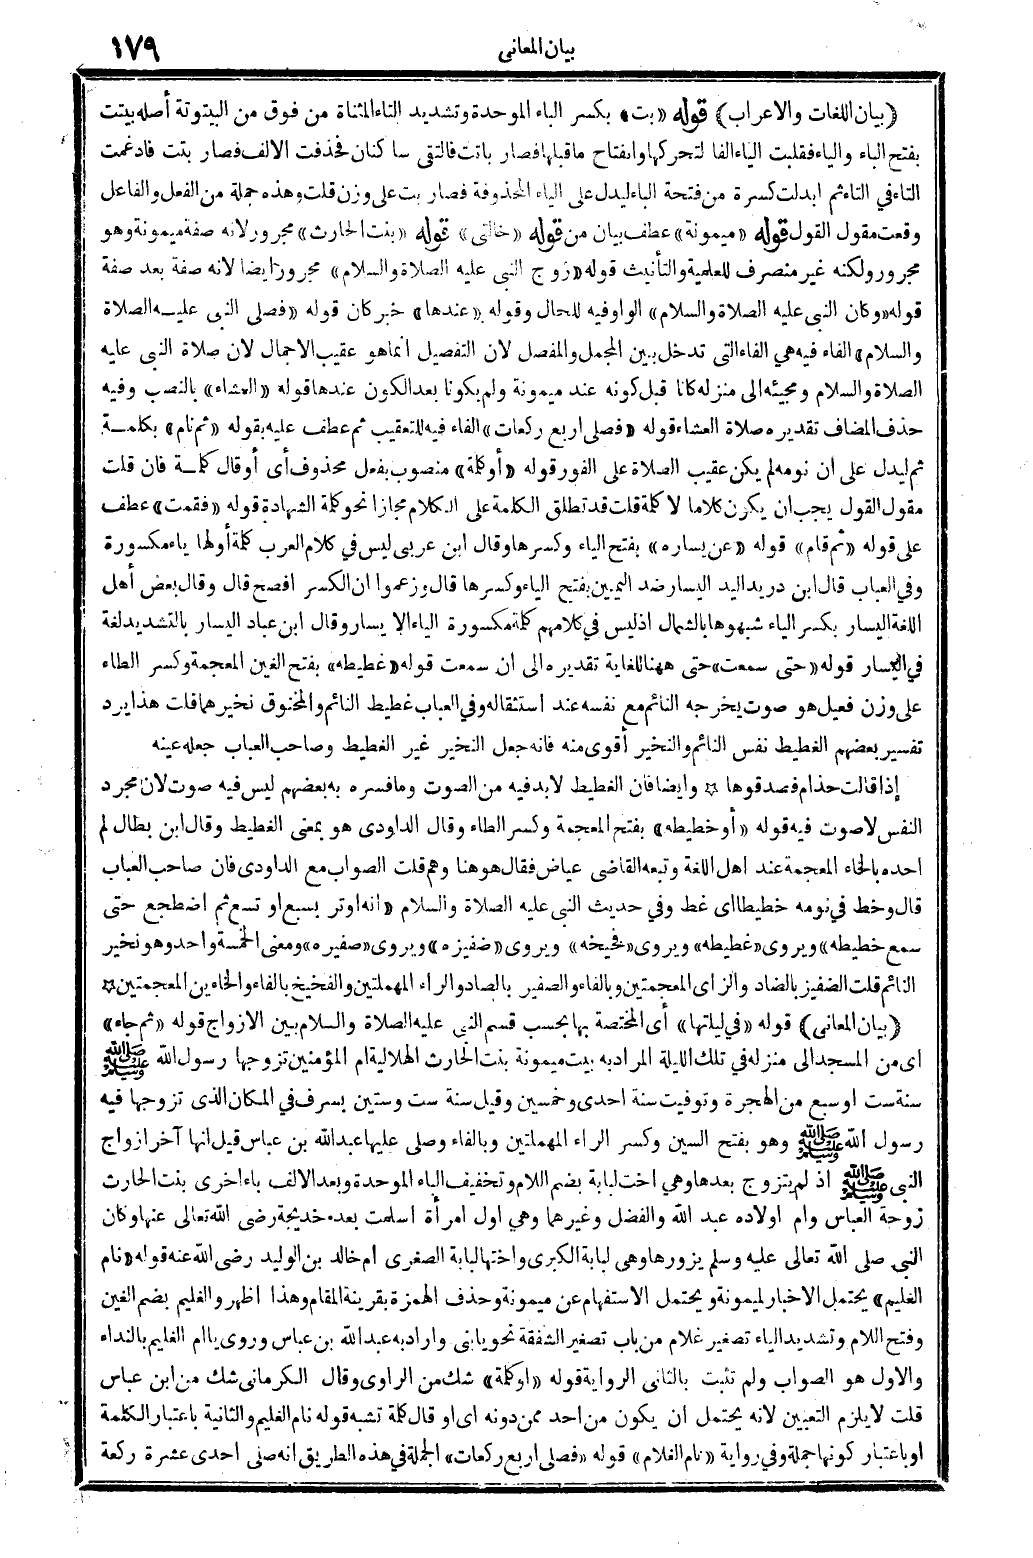 بيان المعانى
١٧٩
(بيان اللغات والاعراب) قوله «بت» بكسر الباء الموحدة وتشديد التاء المثناة من فوق من البيتوتة أصله بيتت
بفتح الباء والياء فقلبت الياء الفا لتحركها وانفتاح ماقبلها فصار باتت فالتقى ساكنان فحذفت الالف فصار بتت فادغمت
التاء في التاء ثم ابدلت كسرة من فتحة الباء ليدل على الياء المحذوفة فصار بت على وزن قلت وهذه جملة من الفعل والفاعل
وقعت مقول القول قوله «ميمونة» عطف بيان من قوله «خالتى» قوله «بنت الحارث» مجرور لانه صفة ميمونة وهو
مجرور ولكنه غير منصرف للعلمية والتأنيث قوله «زوج النبى عليه الصلاة والسلام» مجرور ايضا لانه صفة بعد صفة
قوله «وكان النبى عليه الصلاة والسلام» الواو فيه للحال وقوله «عندها» خبر كان قوله «فصلى النبى عليه الصلاة
والسلام» الفاء فيه هي الفاء التى تدخل بين المجمل والمفصل لان التفصيل انما هو عقيب الاجمال لان صلاة النبى عليه
الصلاة والسلام ومجيئه الى منزله كانا قبل كونه عند ميمونة ولم يكونا بعد الكون عندها قوله «العشاء» بالنصب وفيه
حذف المضاف تقديره صلاة العشاء قوله «فصلى اربع ركعات» الفاء فيه للتعقيب ثم عطف عليه بقوله «ثم نام» بكلمة
ثم ليدل على ان نومه لم يكن عقيب الصلاة على الفور قوله «أو كلمة» منصوب بفعل محذوف أى أو قال كلمة فان قلت
مقول القول يجب ان يكون كلاما لا كلمة قلت قد تطلق الكلمة على الكلام مجازا نحو كلمة الشهادة قوله «فقمت» عطف
على قوله «ثم قام» قوله «عن يساره» بفتح الياء وكسرها وقال ابن عربى ليس في كلام العرب كلمة أولها ياء مكسورة
وفي العباب قال ابن دريد اليد اليسار ضد اليمين بفتح الياء وكسرها قال وزعموا ان الكسر افصح قال وقال بعض أهل
اللغة اليسار بكسر الياء شبهوها بالشمال اذ ليس في كلامهم كلمة مكسورة الياء الا يسار وقال ابن عباد اليسار بالتشديد لغة
في اليسار قوله «حتى سمعت» حتى ههنا للغاية تقديره الى ان سمعت قوله «غطيطه» بفتح الغين المعجمة وكسر الطاء
على وزن فعيل هو صوت يخرجه النائم مع نفسه عند استثقاله وفي العباب غطيط النائم والمخنوق نخيرهما قلت هذا يرد
تفسير بعضهم الغطيط نفس النائم والنخير أقوى منه فانه جعل النخير غير الغطيط وصاحب العباب جعله عينه
إذا قالت حذام فصدقوها ☆ وايضا فان الغطيط لابد فيه من الصوت وما فسره به بعضهم ليس فيه صوت لان مجرد
النفس لا صوت فيه قوله «أو خطيطه» بفتح المعجمة وكسر الطاء وقال الداودى هو بمعنى الغطيط وقال ابن بطال لم
احده بالخاء المعجمة عند اهل اللغة وتبعه القاضى عياض فقال هو هنا وهم قلت الصواب مع الداودى فان صاحب العباب
قال وخط في نومه خطيطا اى غط وفي حديث النبى عليه الصلاة والسلام «انه اوتر بسبع او تسع ثم اضطجع حتى
سمع خطيطه» ويروى «غطيطه» ويروى «فخيخه» ويروى «ضفيزه» ويروى «صفيره» ومعنى الخمسة واحد وهو نخير
النائم قلت الضفيز بالضاد والزاى المعجمتين وبالفاء والصفير بالصاد والراء المهملتين والفخيخ بالفاء والخاءين المعجمتين ☆
(بيان المعانى) قوله «في ليلتها» أى المختصة بها بحسب قسم النبى عليه الصلاة والسلام بين الازواج قوله «ثم جاء»
اى من المسجد الى منزله في تلك الليلة المراد به بيت ميمونة بنت الحارث الهلالية ام المؤمنين تزوجها رسول الله ﷺ
سنة ست او سبع من الهجرة وتوفيت سنة احدى وخمسين وقيل سنة ست وستين بسرف في المكان الذى تزوجها فيه
رسول الله ﷺ وهو بفتح السين وكسر الراء المهملتين وبالفاء وصلى عليها عبد الله بن عباس قيل انها آخر ازواج
النبى ﷺ اذ لم يتزوج بعدها وهي اخت لبابة بضم اللام وتخفيف الباء الموحدة وبعد الالف باء اخرى بنت الحارث
زوجة العباس وام اولاده عبد الله والفضل وغيرهما وهي اول امرأة اسلمت بعد خديجة رضى الله تعالى عنها وكان
النبى صلى الله تعالى عليه وسلم يزورها وهى لبابة الكبرى واختها لبابة الصغرى ام خالد بن الوليد رضى الله عنه قوله «نام
الغليم» يحتمل الاخبار لميمونة ويحتمل الاستفهام عن ميمونة وحذف الهمزة بقرينة المقام وهذا اظهر والغليم بضم الغين
وفتح اللام وتشديد الياء تصغير غلام من باب تصغير الشفقة نحو يابنى واراد به عبد الله بن عباس وروى ياام الغليم بالنداء
والاول هو الصواب ولم تثبت بالثانى الرواية قوله «او كلمة» شك من الراوى وقال الكرمانى شك من ابن عباس
قلت لا يلزم التعيين لانه يحتمل ان يكون من احد ممن دونه اى او قال كلمة تشبه قوله نام الغليم والثانية باعتبار الكلمة
او باعتبار كونها جملة وفي رواية «نام الغلام» قوله «فصلى اربع ركعات» الجملة في هذه الطريق انه صلى احدى عشرة ركعة